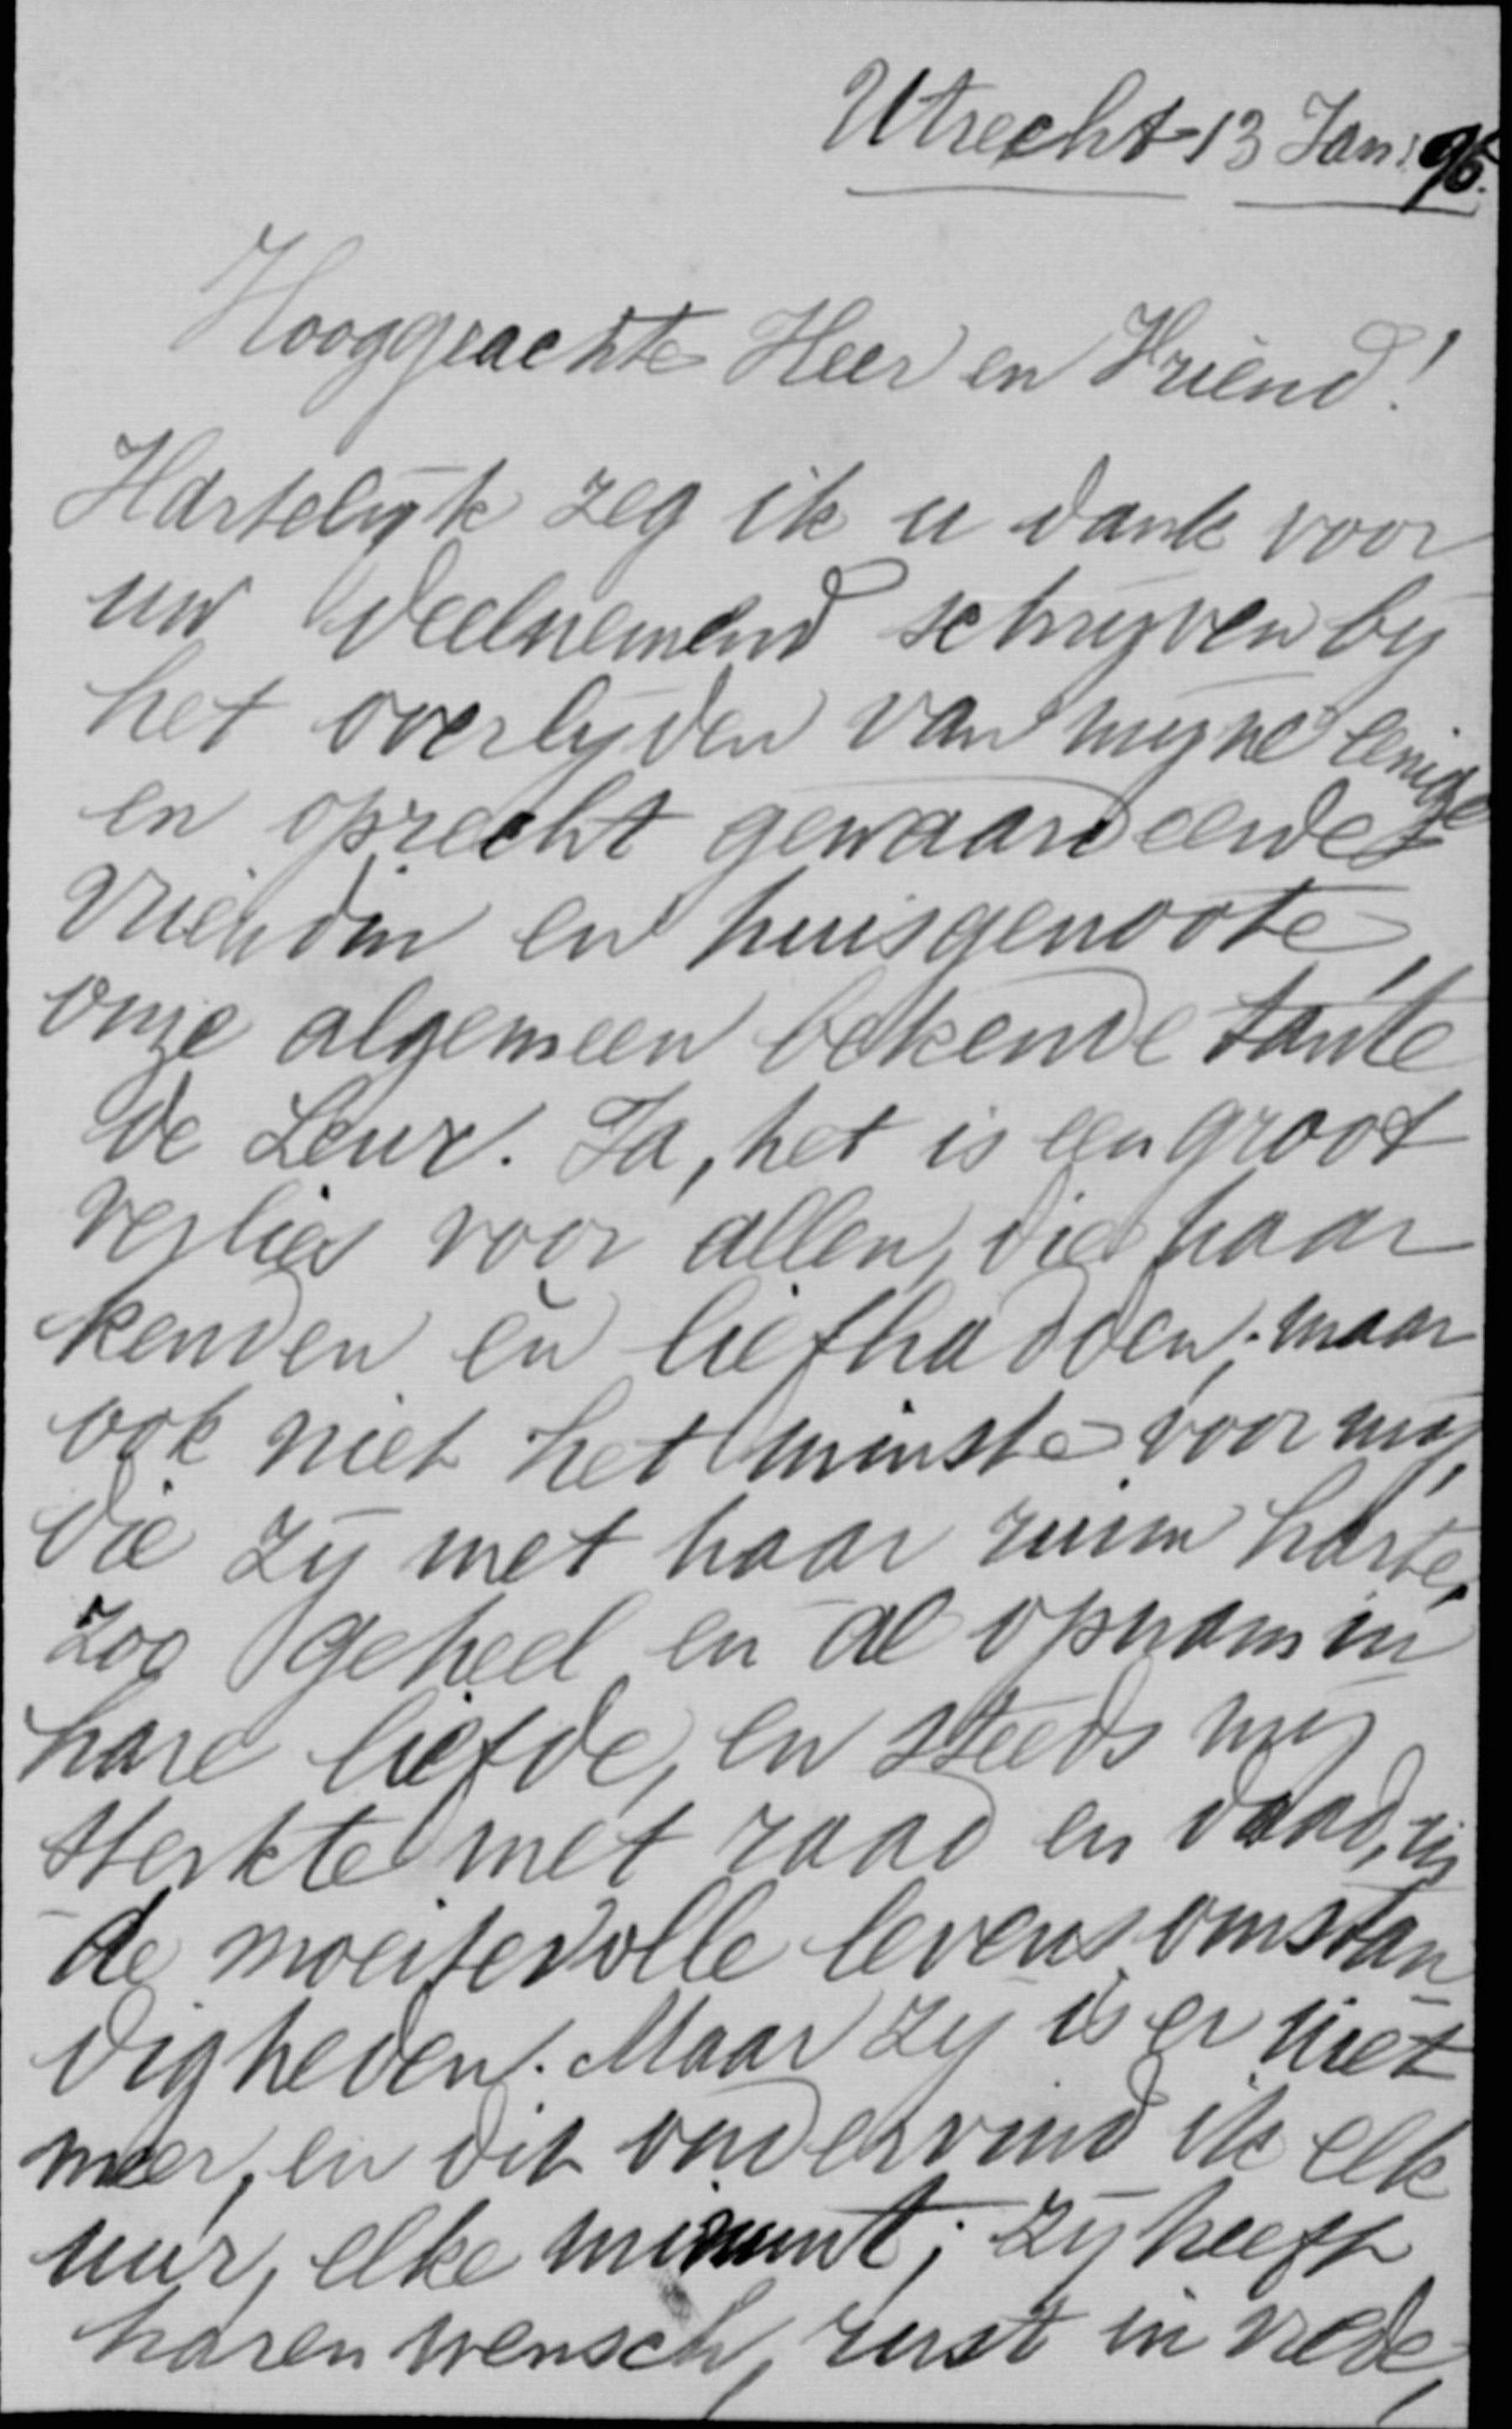 Utrecht 13 Jan: 96.
Hooggeachte Heer en Vriend!
Hartelijk zeg ik u dank voor
uw deelnemend schrijven bij
het overlijden van mijne eenige
en oprecht gewaardeerde
vriendin en huisgenoote,
onze algemeen bekende tante
de Leur. Ja, het is een groot
verlies voor allen, die haar
kenden èn liefhadden; maar
ook niet het minste voor mij,
die zij met haar ruim harte,
zoo geheel en al opnam in
hare liefde, en steeds mij
sterkte met raad en daad, in
de moeitevolle levensomstan
digheden. Maar zij is er niet
meer, en dit ondervind ik elk
uur, elke minuut; zij heeft
haren wensch, rust in vrede,